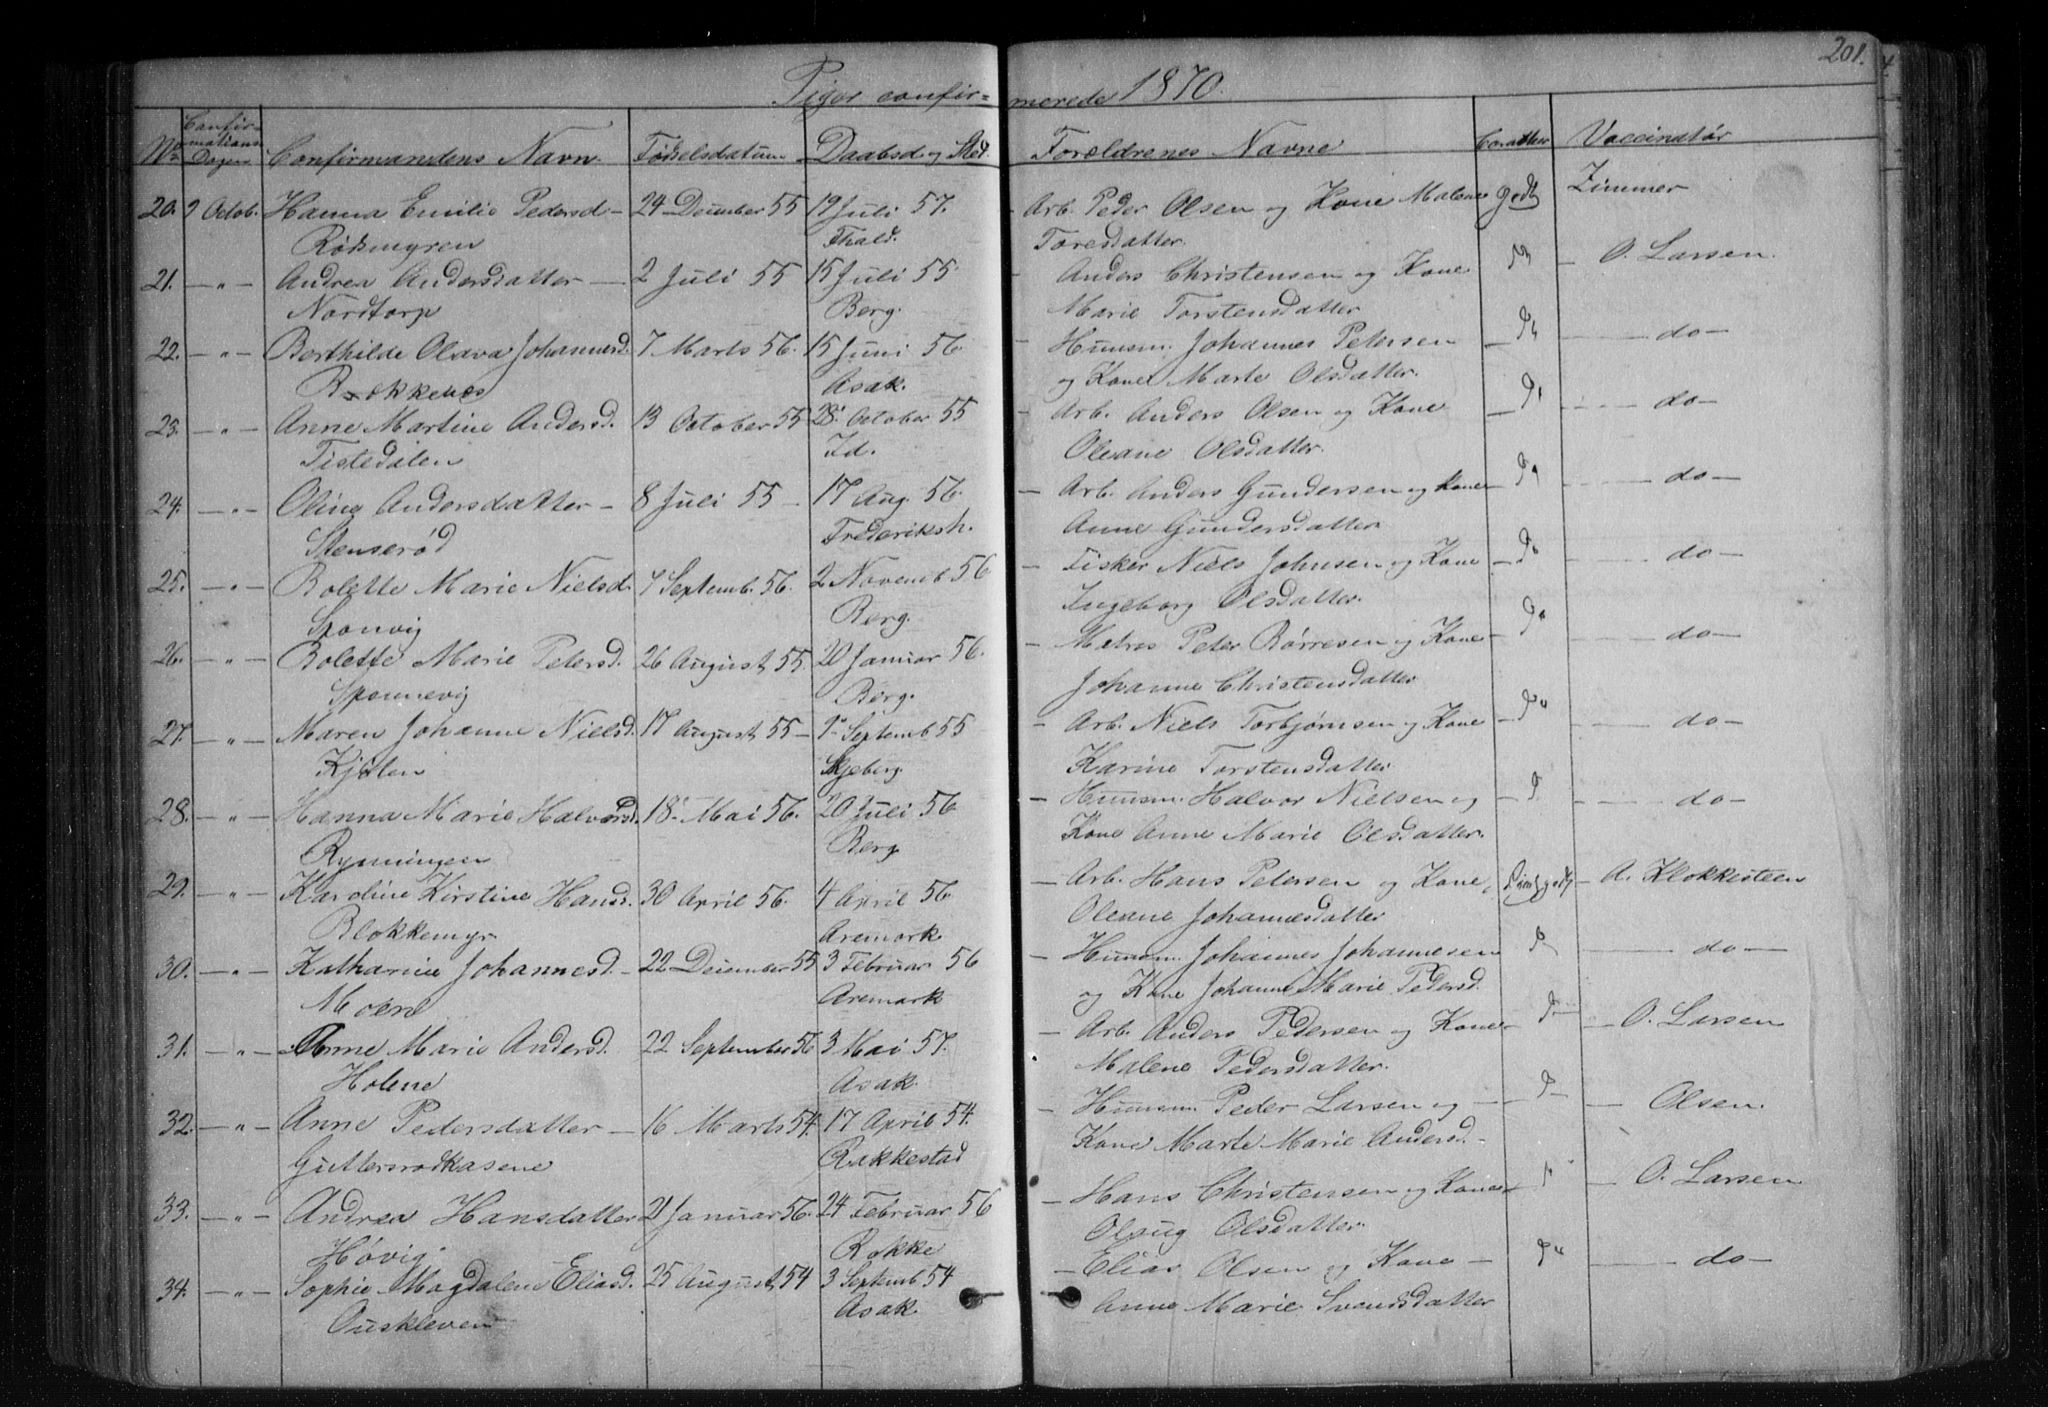 201.
Piger confir= merede 1870.
No Confirmations Dagen Confirmandens Navn. Fødselsdatum Daabsd. og Sted. Forældrenes Navne Caracter Vaccinatør
20. 2 Octob. Hanna Emilie Pedersd. 24 December 55 19 Juli 57. Arb. Peder Olsen og Kone Malene Godt Zimmer
Rødsmyren Thald. Toresdatter.
21. — " — Andrea Andersdatter — 2 Juli 55 15 Juli 55 — Anders Christensen og Kone O. Larsen.
Nordtorp Berg. Marie Torstensdatter
22. — " — Berthilde Olava Johannesd. 7 Marts 56. 15 Juni 56. — Huusm. Johannes Petersen — do —
Asak. og Kone Marte Olsdatter.
23. — " — Anne Martine Andersd. 13 October 55 28 October 55 — Arb. Anders Olsen og Kone — do —
Tistedalen Id. Oleane Olsdatter.
24. — " — Oline Andersdatter — 8 Juli 55 — 17 Aug. 56. — Arb. Anders Gundersen og Kone — do —
Stenserød Frederiksh. Anne Gundersdatter
25. — " — Bolette Marie Nielsd. 7 Septemb. 56. 2 Novemb 56 — Fisker Niels Johnsen og Kone — do —
Sponvig Berg. Ingeborg Olsdatter.
26. — " — Bolette Marie Petersd. 26 August 55. 20 Januar 56. — Matros Peter Børresen og Kone — do —
Sponnevig Berg. Johanne Christensdatter
27. — " — Maren Johanne Nielsd. 17 August 55 — 1 Septemb 55 — Arb. Niels Torbjørnsen og Kone — do —
Kjølen Skjeberg. Karine Torstensdatter
28. — " — Hanna Marie Halvorsd. 18 Mai 56. 20 Juli 56 — Huusm. Halvor Nielsen og — do —
Rynningen Berg Kone Anne Marie Olsdatter.
29. — " — Karoline Kirstine Hansd. 30 April 56. 4 April 56 — Arb. Hans Petersen og Kone A. Klokkesteen
Blokkemyr Aremark Oleane Johannesdatter
30. — " — Katharine Johannesd. — 22 December 55 3 Februar 56 — Huusm. Johannes Johannesen — do —
Moen Aremark og Kone Johanne Marie Pedersd.
31. — " — Anne Marie Andersd. 22 September 56 3 Mai 57. — Arb. Anders Pedersen og Kone — O. Larsen
Holene Asak. Malene Pedersdatter.
32. — " — Anne Pedersdatter — 16 Marts 54. 17 April 54. — Huusm. Peder Larsen og — Olsen.
Guttersrødkasene Rakkestad Kone Marte Marie Andersd. —
33. — " — Andrea Hansdatter 21 Januar 56. 24 Februar 56 — Hans Christensen og Kone — O. Larsen
Høvig Rokke Olaug Olsdatter.
34. — " — Sophie Magdalene Eliasd. 25 August 54 3 Septemb 54 — Elias Olsen og Kone — do —
Ouskleven Asak. Anne Marie Svendsdatter